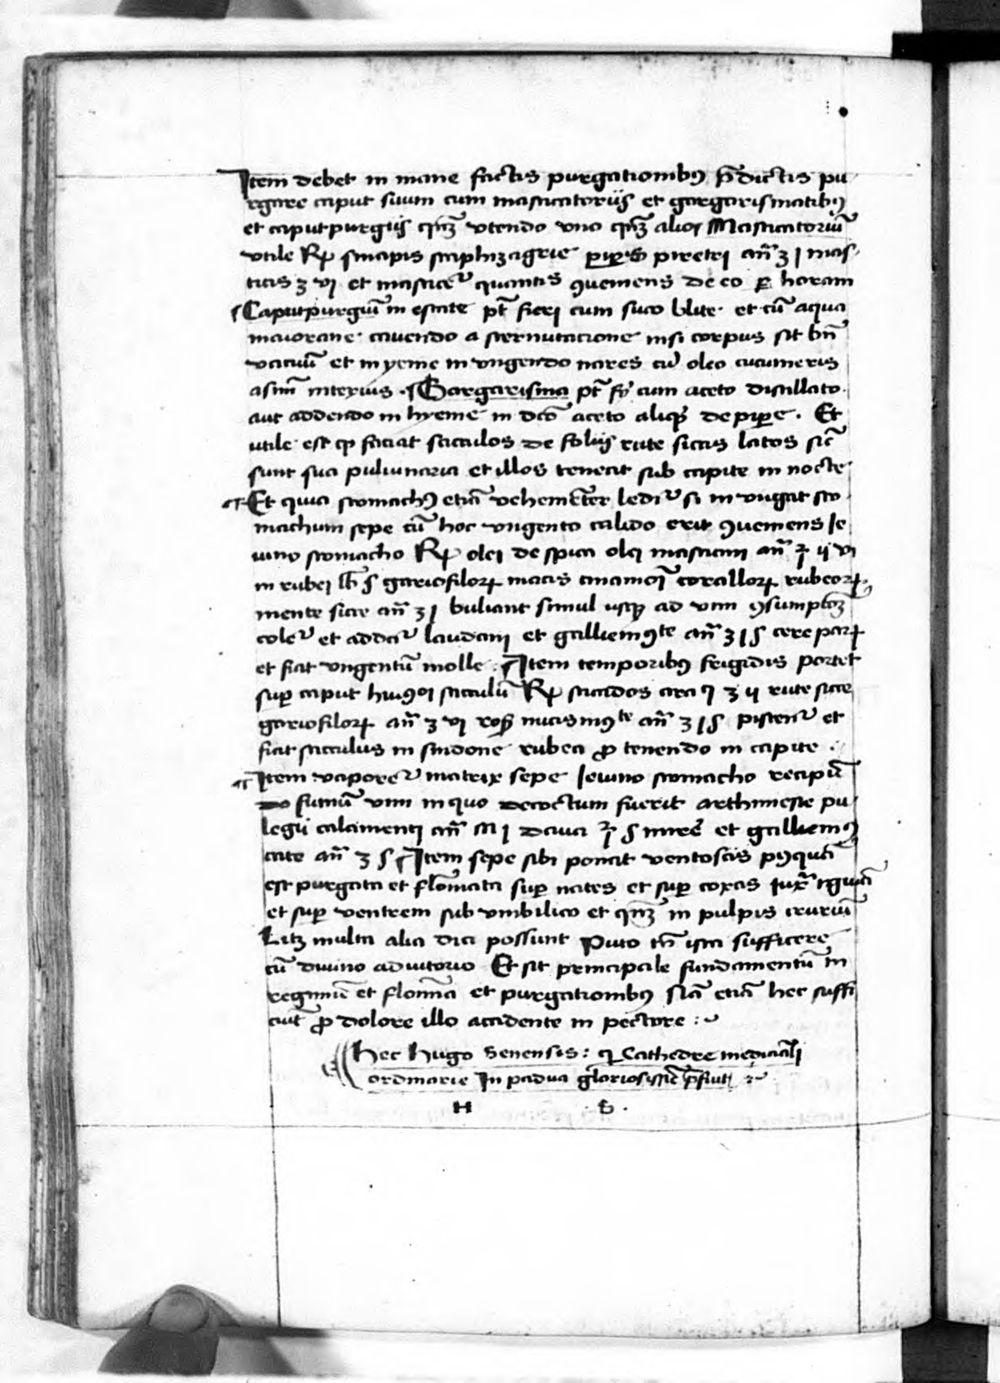 Item debet in mane factis purgationibꝯ p̄dictis pu
rgare caput suum cum masticatoriis et gargarismatibꝯ
et caputpurgiis qn̄qꝫ vtendo vno qn̄qꝫ alior Masticatoriū
vtile Rp sinapis staphizagrie piperis piretri an̄ ʒ j mas
ticis ʒ vj et masticet̄ quantis ꝯueniens de eo ꝑ horam
¶ Caputpurgiū in estate pt̄ fieri cum suco blite et cū aqua
maiorane cauendo a sternutacione nisi corpus sit bn̄
vacuū et in yeme in vngendo nares cū oleo cucumeris
asinī interius ¶ Gargarisma pt̄ fi cum aceto distillato
aut addendo in hyeme in dc̄o aceto aliqd de pipere . Et
utile est qp faciat sacculos de foliis rute siccis latos sic̄
sunt sua puluinaria et illos teneat sub capite in nocte
¶ Et quia stomachꝯ etiā vehementer ledit̄ si in vngat sto
machum sepe cū hoc vngento calido erit ꝯueniens Ie
iuno stomacho Rp olei de spica olei masticini an̄ ℥ ij vi
ni rubei lb ʃ gariofiloꝝ macis cinamoī coralloꝝ rubeoꝝ
mente sicce an̄ ʒ j buliant simul usqꝫ ad vini ꝯsumptōꝫ
colet̄ et addat̄ laudani et gallie mꝯte an̄ ʒ j ʃ cere paꝝ
et fiat vngentū molle . ¶ Item temporibꝯ frigidis portet
sup caput huiꝯoi sacculū Rp sticados ara q ʒ ij rute sicce
gariofiloꝝ an̄ ʒ vj nucis mꝯte an̄ ʒ j ʃ pistent̄ et
fiat sacculus in sindone rubea ꝓ tenendo in capite .
¶ Item vaporet̄ matrix sepe Ieiuno stomacho recipiē
do fumū vini in quo decoctum fuerit arthimesie pu
legii calamenti an̄ M j dauci ℥ ʃ mirre et gallie mꝯ
cate an̄ ʒ ʃ ¶ Item sepe sibi ponat ventosas pꝯquā
est purgata et flo͞mata sup nates et sup coxas iuxͣ iguiā
et sup ventrem sub vmbilico et qn̄qꝫ in pulpis cruriū
Licꝫ multa alia dici possunt Puto tn̄ ista sufficere
cū diuino adiutorio Et sit principale fundamentū in
regimīe et flo͞mia et purgationibꝯ Nā etiā hec suffi
ciūt ꝓ dolore illo accidente in pectore :
Hec Hugo Senensis : q Cathedre medicinali
ordinarie In padua gloriosissīe p̄fuit
H S .